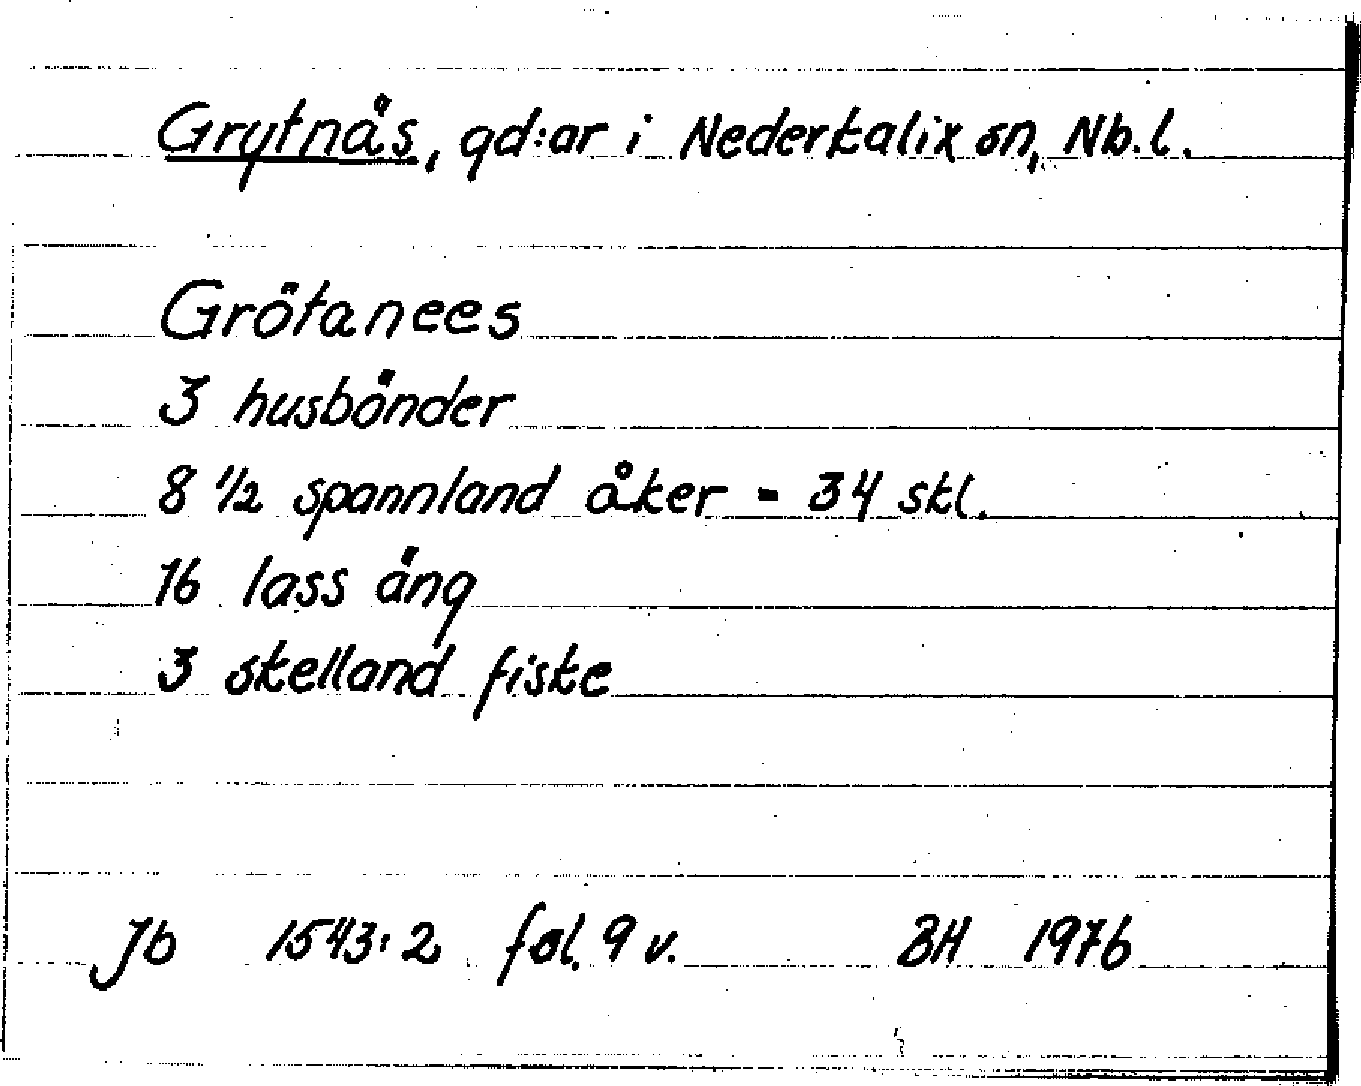 Grytnäs, gd:ar i Nederkalix sn, Nb.l.
Grötanees
3 husbönder
8 1/2 spannland åker = 34 skl.
16 lass äng
3 skelland fiske
Jb 1543:2 fol. 9 v. BH 1976